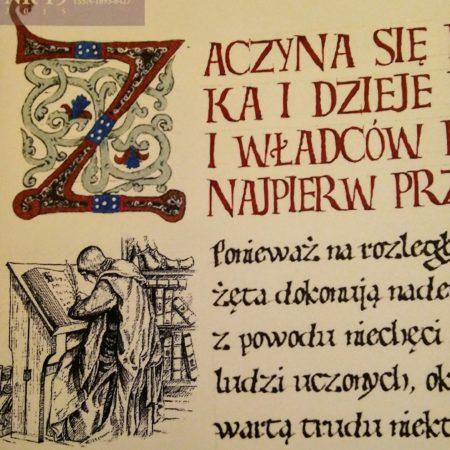 NR 15
2015
ZACZYNA SIĘ
KA I DZIEJE
I WŁADCÓW
NAJPIERW PRZ
Ponieważ na rozległ
żęta dokonują nade
z powodu niechęci
ludzi uczonych, ok
wartą trudu niekt